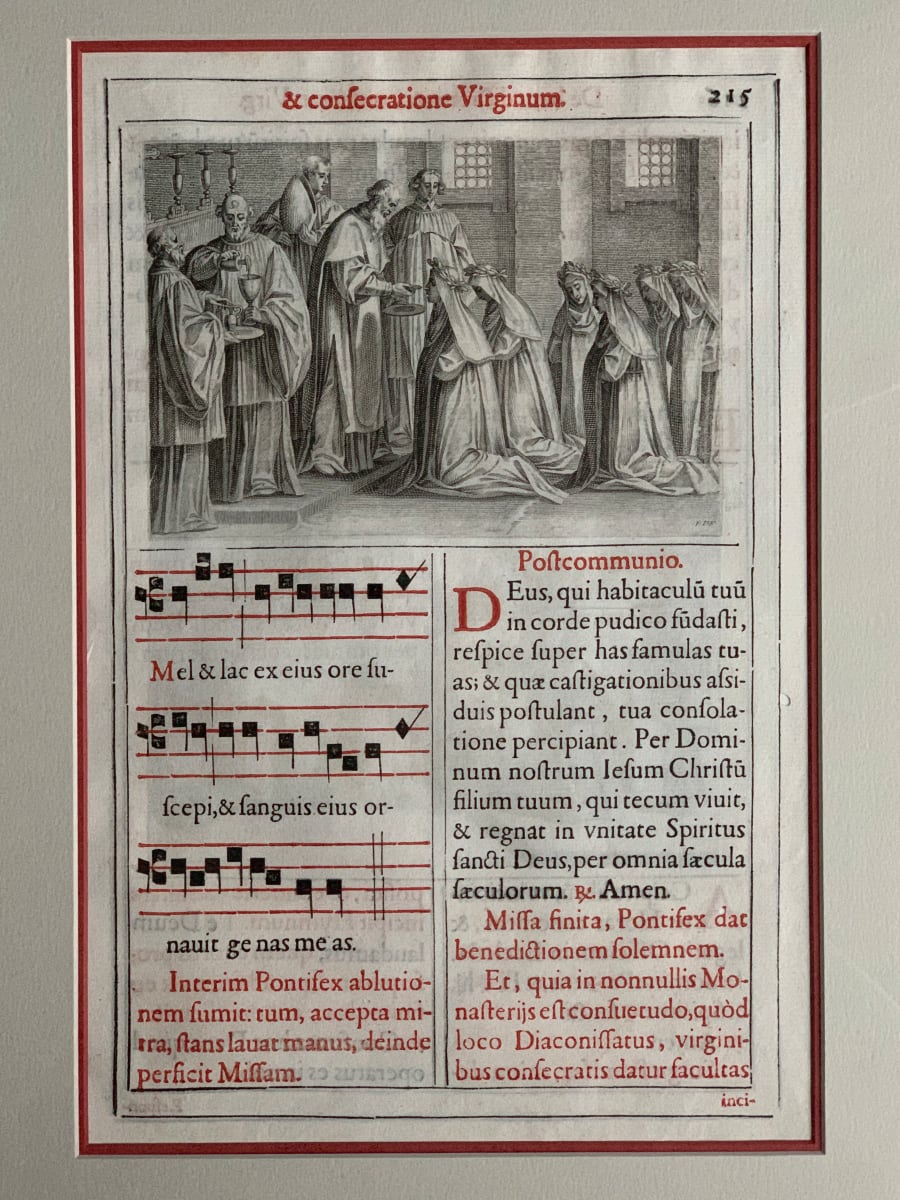 & conſecratione Virginum. 215
Mel & lac ex eius ore ſu-
ſcepi, & ſanguis eius or-
nauit ge nas me as.
Interim Pontifex ablutio-
nem ſumit: tum, accepta mi-
tra, ſtans lauat manus, deinde
perficit Miſſam.
Poſtcommunio.
DEus, qui habitaculū tuū
in corde pudico fūdaſti,
reſpice ſuper has famulas tu-
as; & quæ caſtigationibus aſſi-
duis poſtulant, tua conſola-
tione percipiant. Per Domi-
num noſtrum Ieſum Chriſtū
filium tuum, qui tecum viuit,
& regnat in vnitate Spiritus
ſancti Deus, per omnia ſæcula
ſæculorum. ℟. Amen.
Miſſa finita, Pontifex dat
benedictionem ſolemnem.
Et, quia in nonnullis Mo-
naſterijs eſt conſuetudo, quòd
loco Diaconiſſatus, virgini-
bus conſecratis datur facultas
inci-